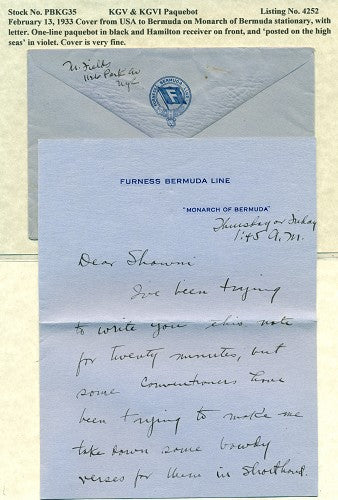 Stock No. PBKG35 KGV & KGVI Paquebot Listing No. 4252
February 13, 1933 Cover from USA to Bermuda on Monarch of Bermuda stationary, with
letter. One-line paquebot in black and Hamilton receiver on front, and 'posted on the high
seas' in violet. Cover is very fine.
M. Fields
1126 Park Av
NYC
FURNESS BERMUDA LINE
FURNESS BERMUDA LINE
"MONARCH OF BERMUDA"
Thursday or Friday
1:45 A.M.
Dear Showni
I've been trying
to write you this note
for twenty minutes, but
some Conventioners have
been trying to make me
take down some bawdy
verses for them in Shorthand.